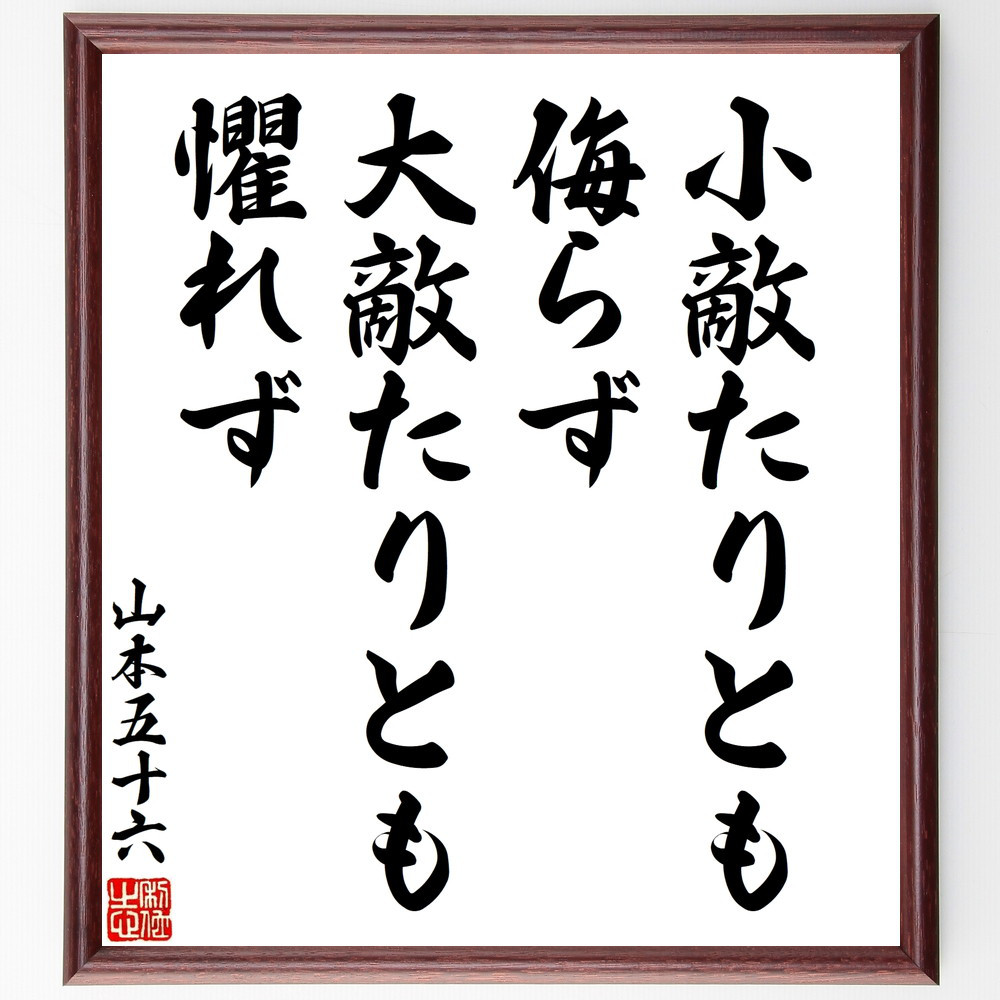 小敵たりとも
侮らず
大敵たりとも
懼れず
山本五十六